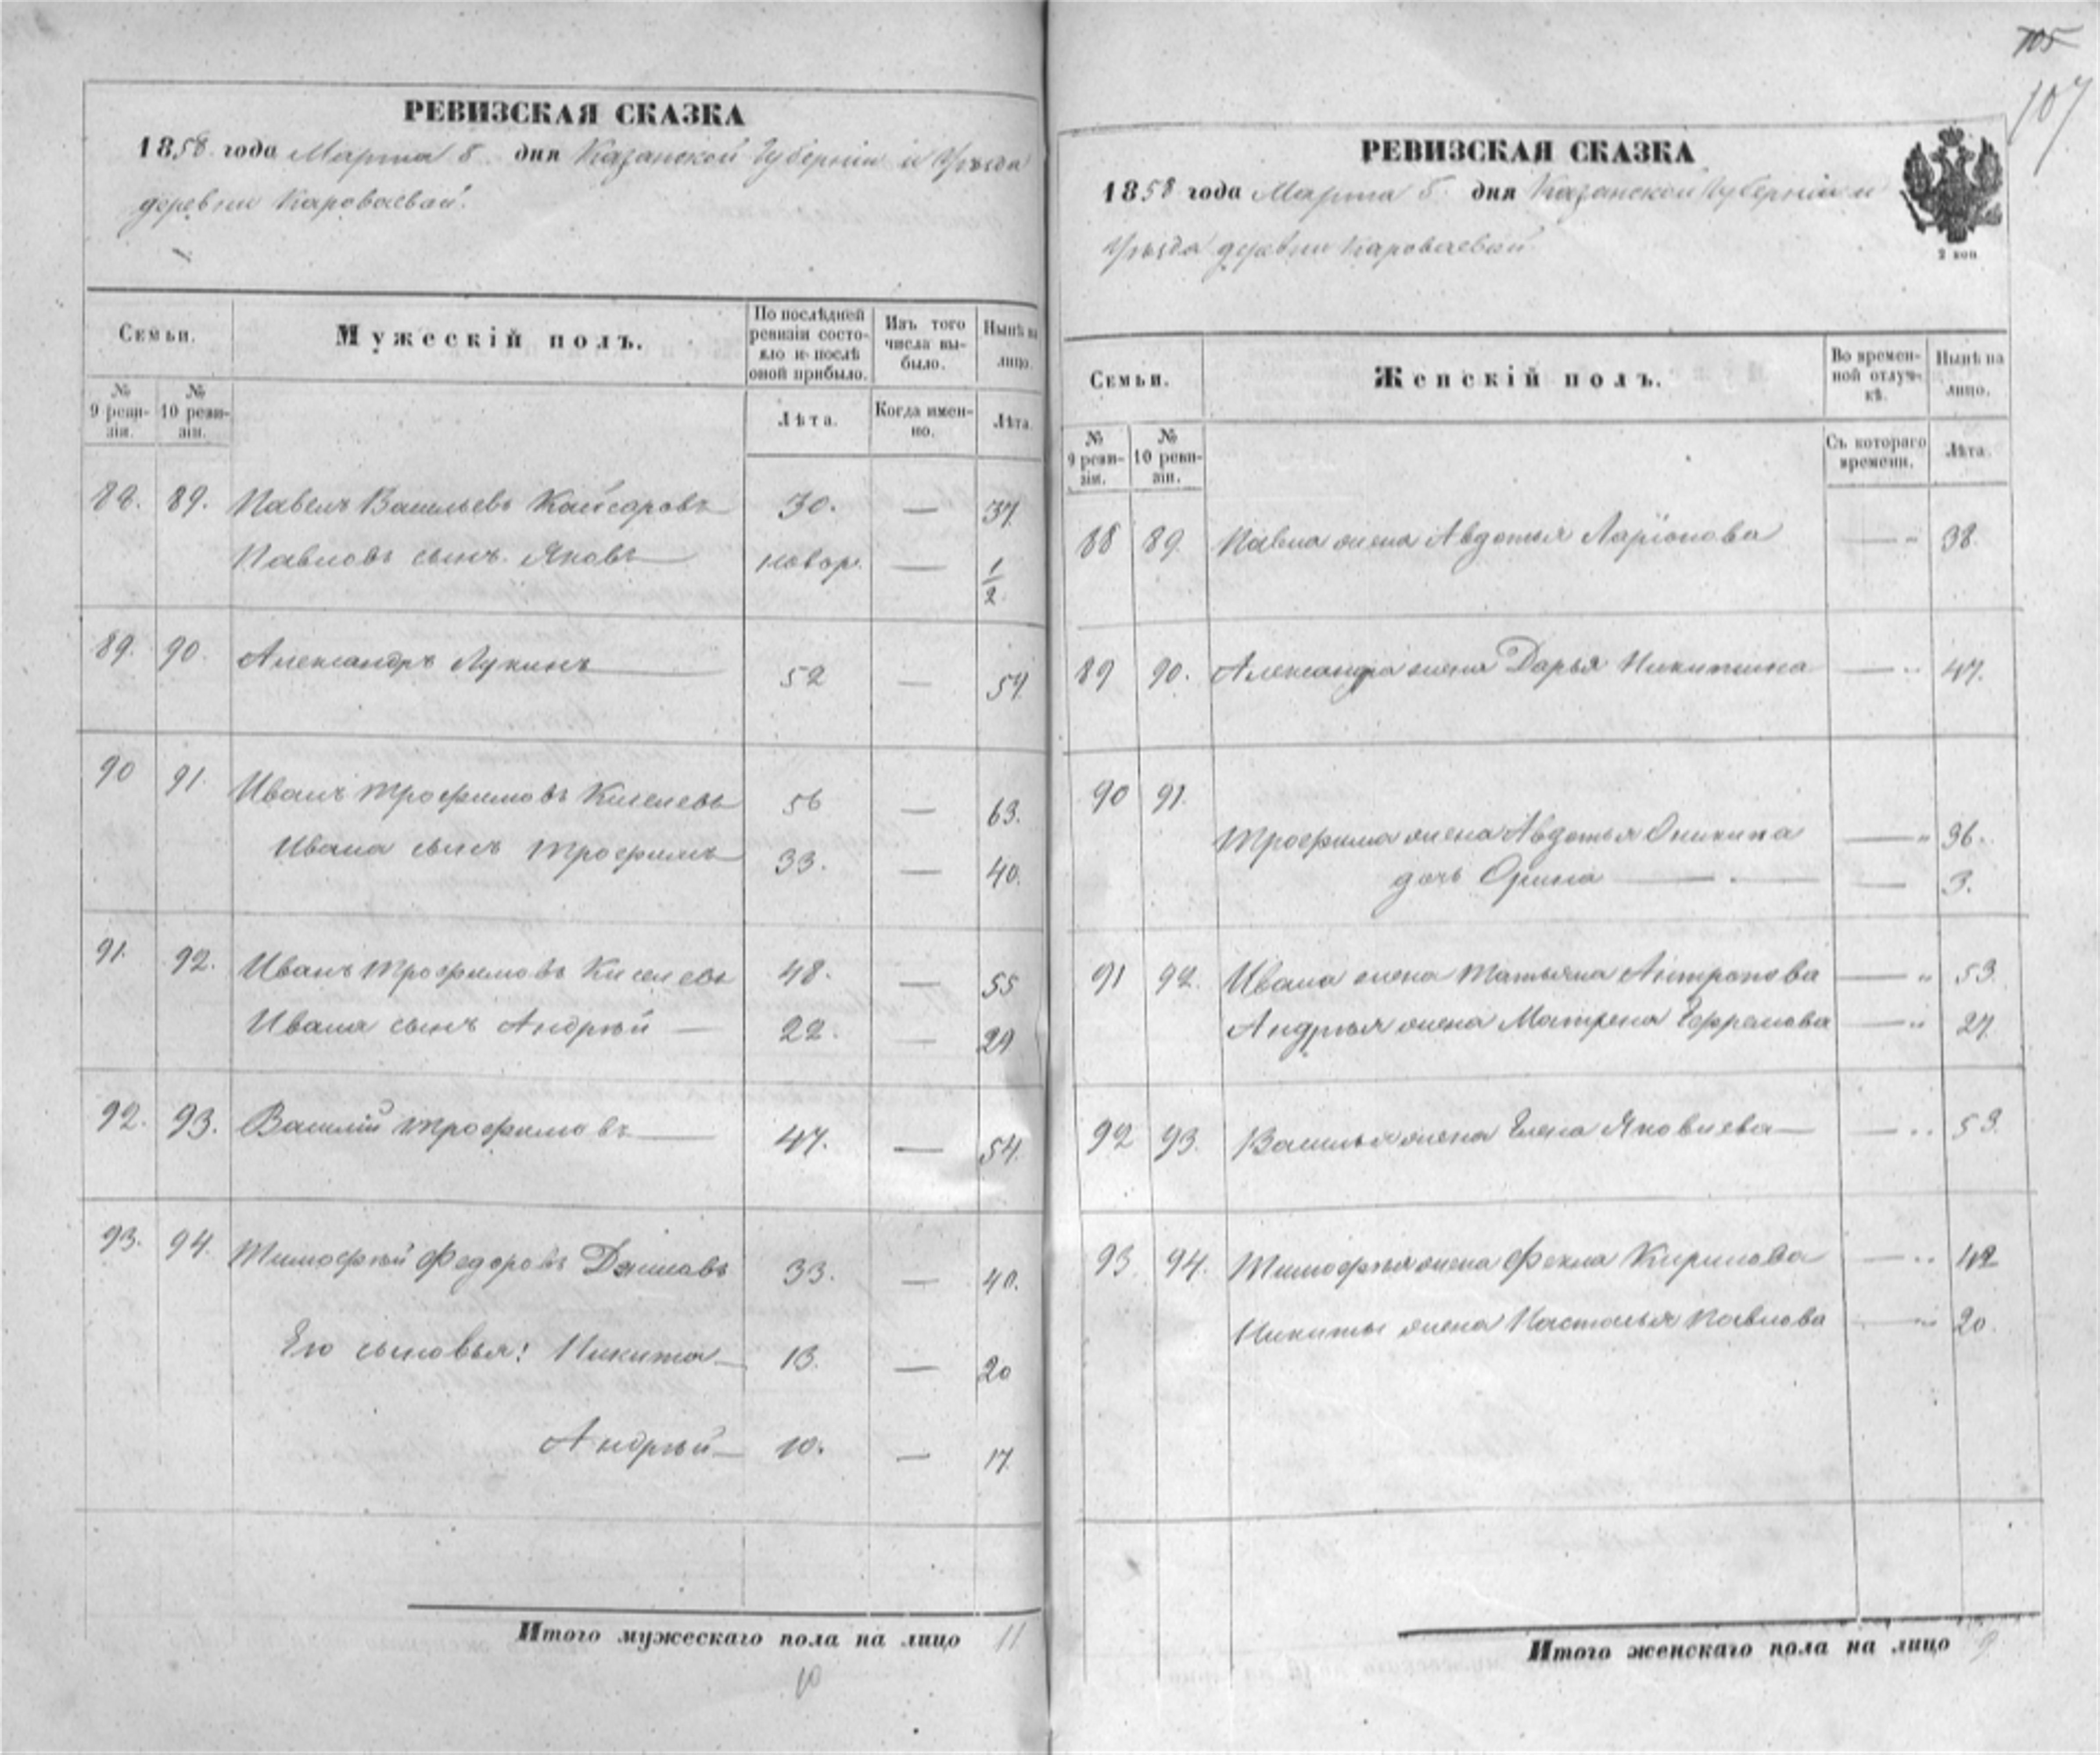 105
107
РЕВИЗСКАЯ СКАЗКА
1858 года Марта 8 дня Казанской Губерніи и Уѣзда
деревни Караваевой.
Семьи.
Мужескій полъ.
По послѣдней ревизіи состояло и послѣ оной прибыло.
Изъ того числа выбыло.
Нынѣ на лицо.
№ 9 ревизіи.
№ 10 ревизіи.
Лѣта.
Когда именно.
Лѣта.
88. 89. Павелъ Васильевъ Кайсаровъ 30. — 37.
Павловъ сынъ Яковъ новор. — 1/2.
89. 90. Александръ Лукинъ 52 — 59.
90 91. Иванъ Трофимовъ Киселевъ 56 — 63.
Ивана сынъ Трофимъ 33. — 40.
91. 92. Иванъ Трофимовъ Киселевъ 48. — 55
Ивана сынъ Андрѣй — 22. — 29
92. 93. Василій Трофимовъ 47. — 54.
93. 94. Тимофѣй Федоровъ 33. — 40.
Его сыновья: Никита 13. — 20
Андрѣй 10. — 17.
Итого мужескаго пола на лицо 11
10
РЕВИЗСКАЯ СКАЗКА
1858 года Марта 8 дня Казанской Губерніи и
Уѣзда деревни Караваевой
2 коп
Семьи.
Женскій полъ.
Во временной отлучкѣ.
Нынѣ на лицо.
№ 9 ревизіи.
№ 10 ревизіи.
Съ котораго времени.
Лѣта.
88 89. Павла жена Авдотья Ларіонова — 38.
89 90. Александра жена Дарья Никитина — 47.
90 91.
Трофима жена Авдотья Оникина — 36.
дочь Орина — 3.
91 92. Ивана жена Татьяна Антропова — 53.
Андрѣя жена Матрена Ефремова — 27.
92 93. Василья жена Елена Яковлева — 53.
93 94. Тимофѣя жена Фекла Кирилова — 42
Никиты жена Настасья Павлова — 20.
Итого женскаго пола на лицо 9